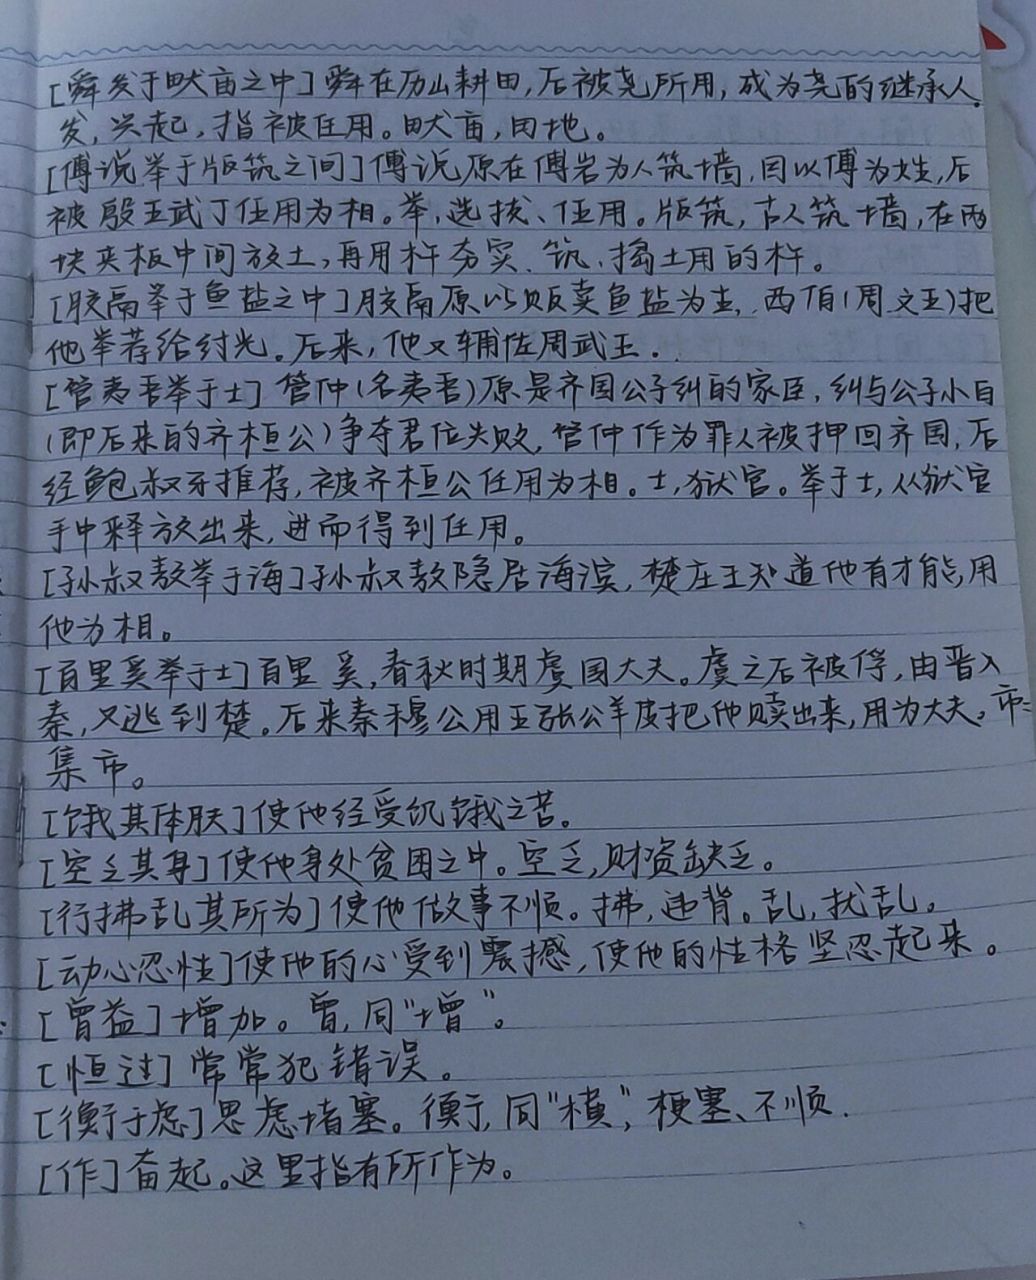 [舜发于畎亩之中]舜在历山耕田,后被尧所用,成为尧的继承人.
发,兴起,指被任用。畎亩,田地。
[傅说举于版筑之间]傅说原在傅岩为人筑墙,因以傅为姓,后
被殷王武丁任用为相。举,选拔、任用。版筑,古人筑墙,在两
块夹板中间放土,再用杵夯实.筑、捣土用的杵。
[胶鬲举于鱼盐之中]胶鬲原以贩卖鱼盐为生,西伯(周文王)把
他举荐给纣光。后来,他又辅佐周武王.
[管夷吾举于士]管仲(名夷吾)原是齐国公子纠的家臣,纠与公子小白
(即后来的齐桓公)争夺君位失败,管仲作为罪人被押回齐国,后
经鲍叔牙推荐,被齐桓公任用为相。士,狱官。举于士,从狱官
手中释放出来,进而得到任用。
[孙叔敖举于海]孙叔敖隐居海滨,楚庄王知道他有才能,用
他为相。
[百里奚举于士]百里奚,春秋时期虞国大夫。虞之后被俘,由晋入
秦,又逃到楚。后来秦穆公用五张公羊皮把他赎出来,用为大夫。市:
集市。
[饿其体肤]使他经受饥饿之苦。
[空乏其身]使他身处贫困之中。空乏,财资缺乏。
[行拂乱其所为]使他做事不顺。拂,违背。乱,扰乱。
[动心忍性]使他的心受到震撼,使他的性格坚忍起来。
[曾益]增加。曾,同“增”。
[恒过]常常犯错误。
[衡于虑]思虑堵塞。衡,同“横”,梗塞、不顺.
[作]奋起。这里指有所作为。